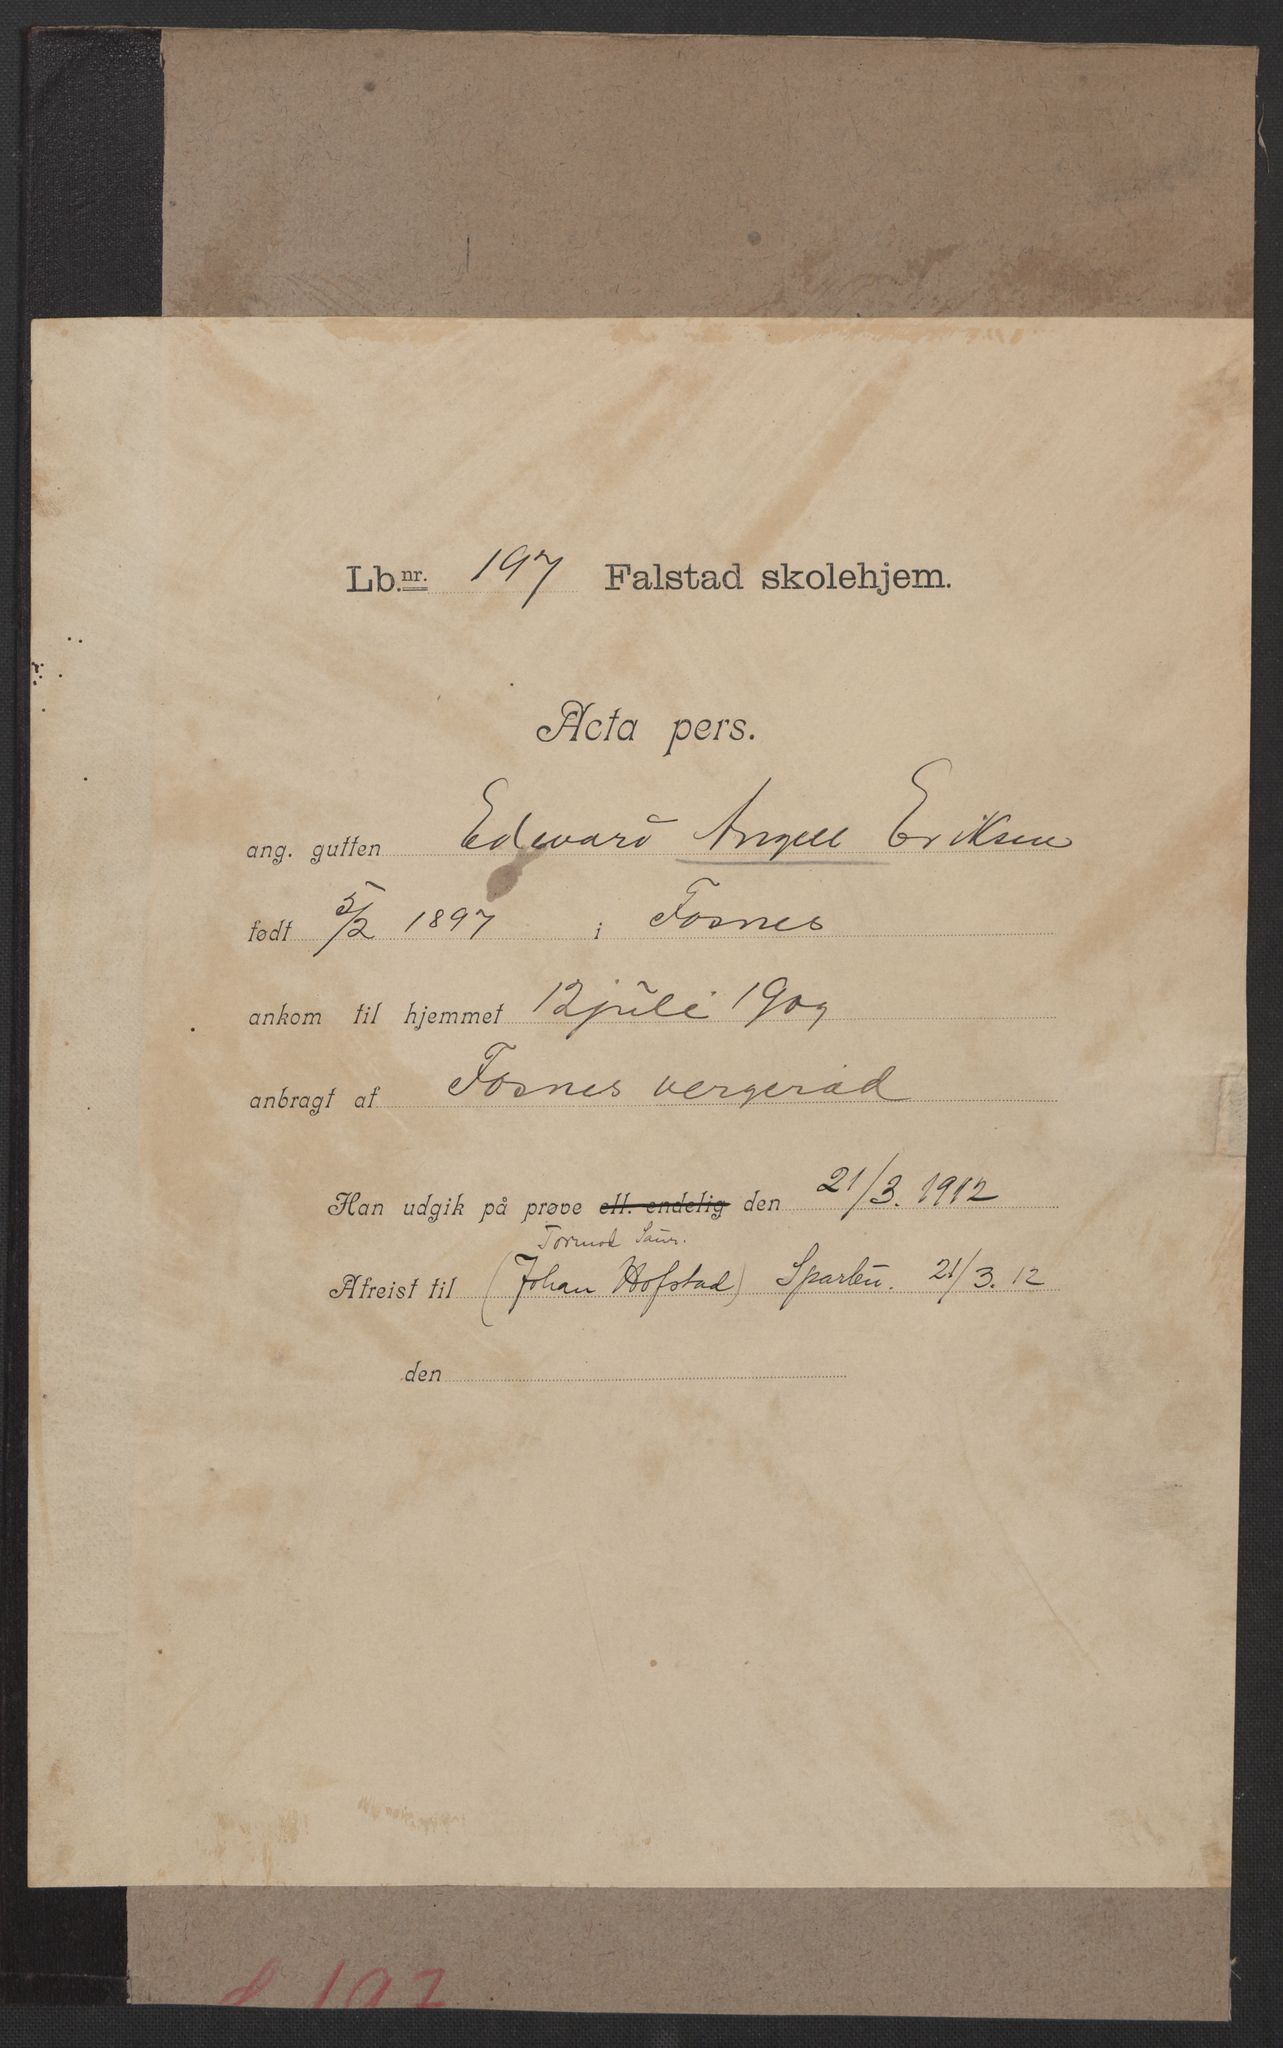 Lb.nr. 197 Falstad skolehjem.
Acta pers.
ang. gutten Edvard Angell Eriksen
født 5/2 1897 i Fosnes
ankom til hjemmet 12 juli 1909
anbragt af Fosnes vergeråd
Han udgik på prøve ell. endelig den 21/3. 1912
Tormod Saur.
Afreist til (Johan Hofstad) Sparbu. 21/3. 12
den
197